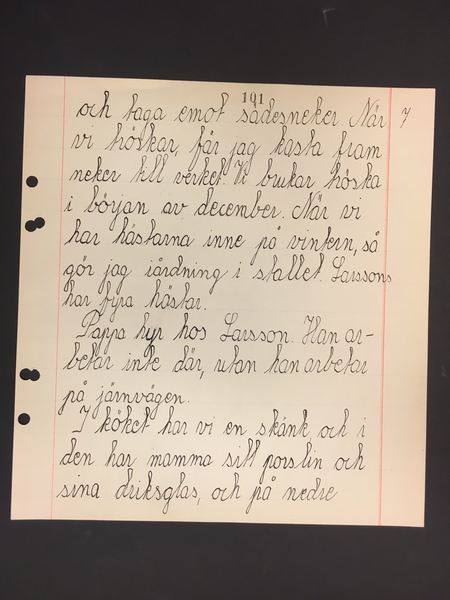 101
och taga emot sädesneker. När 7
vi tröskar, får jag kasta fram
neker till verket. Vi brukar tröska
i början av december. När vi
har hästarna inne på vintern, så
gör jag iårdning i stallet. Larssons
har fyra hästar.
Pappa hyr hos Larsson. Han ar-
betar inte där, utan han arbetar
på järnvägen.
I köket har vi en skänk, och i
den har mamma sitt porslin och
sina driksglas, och på nedre